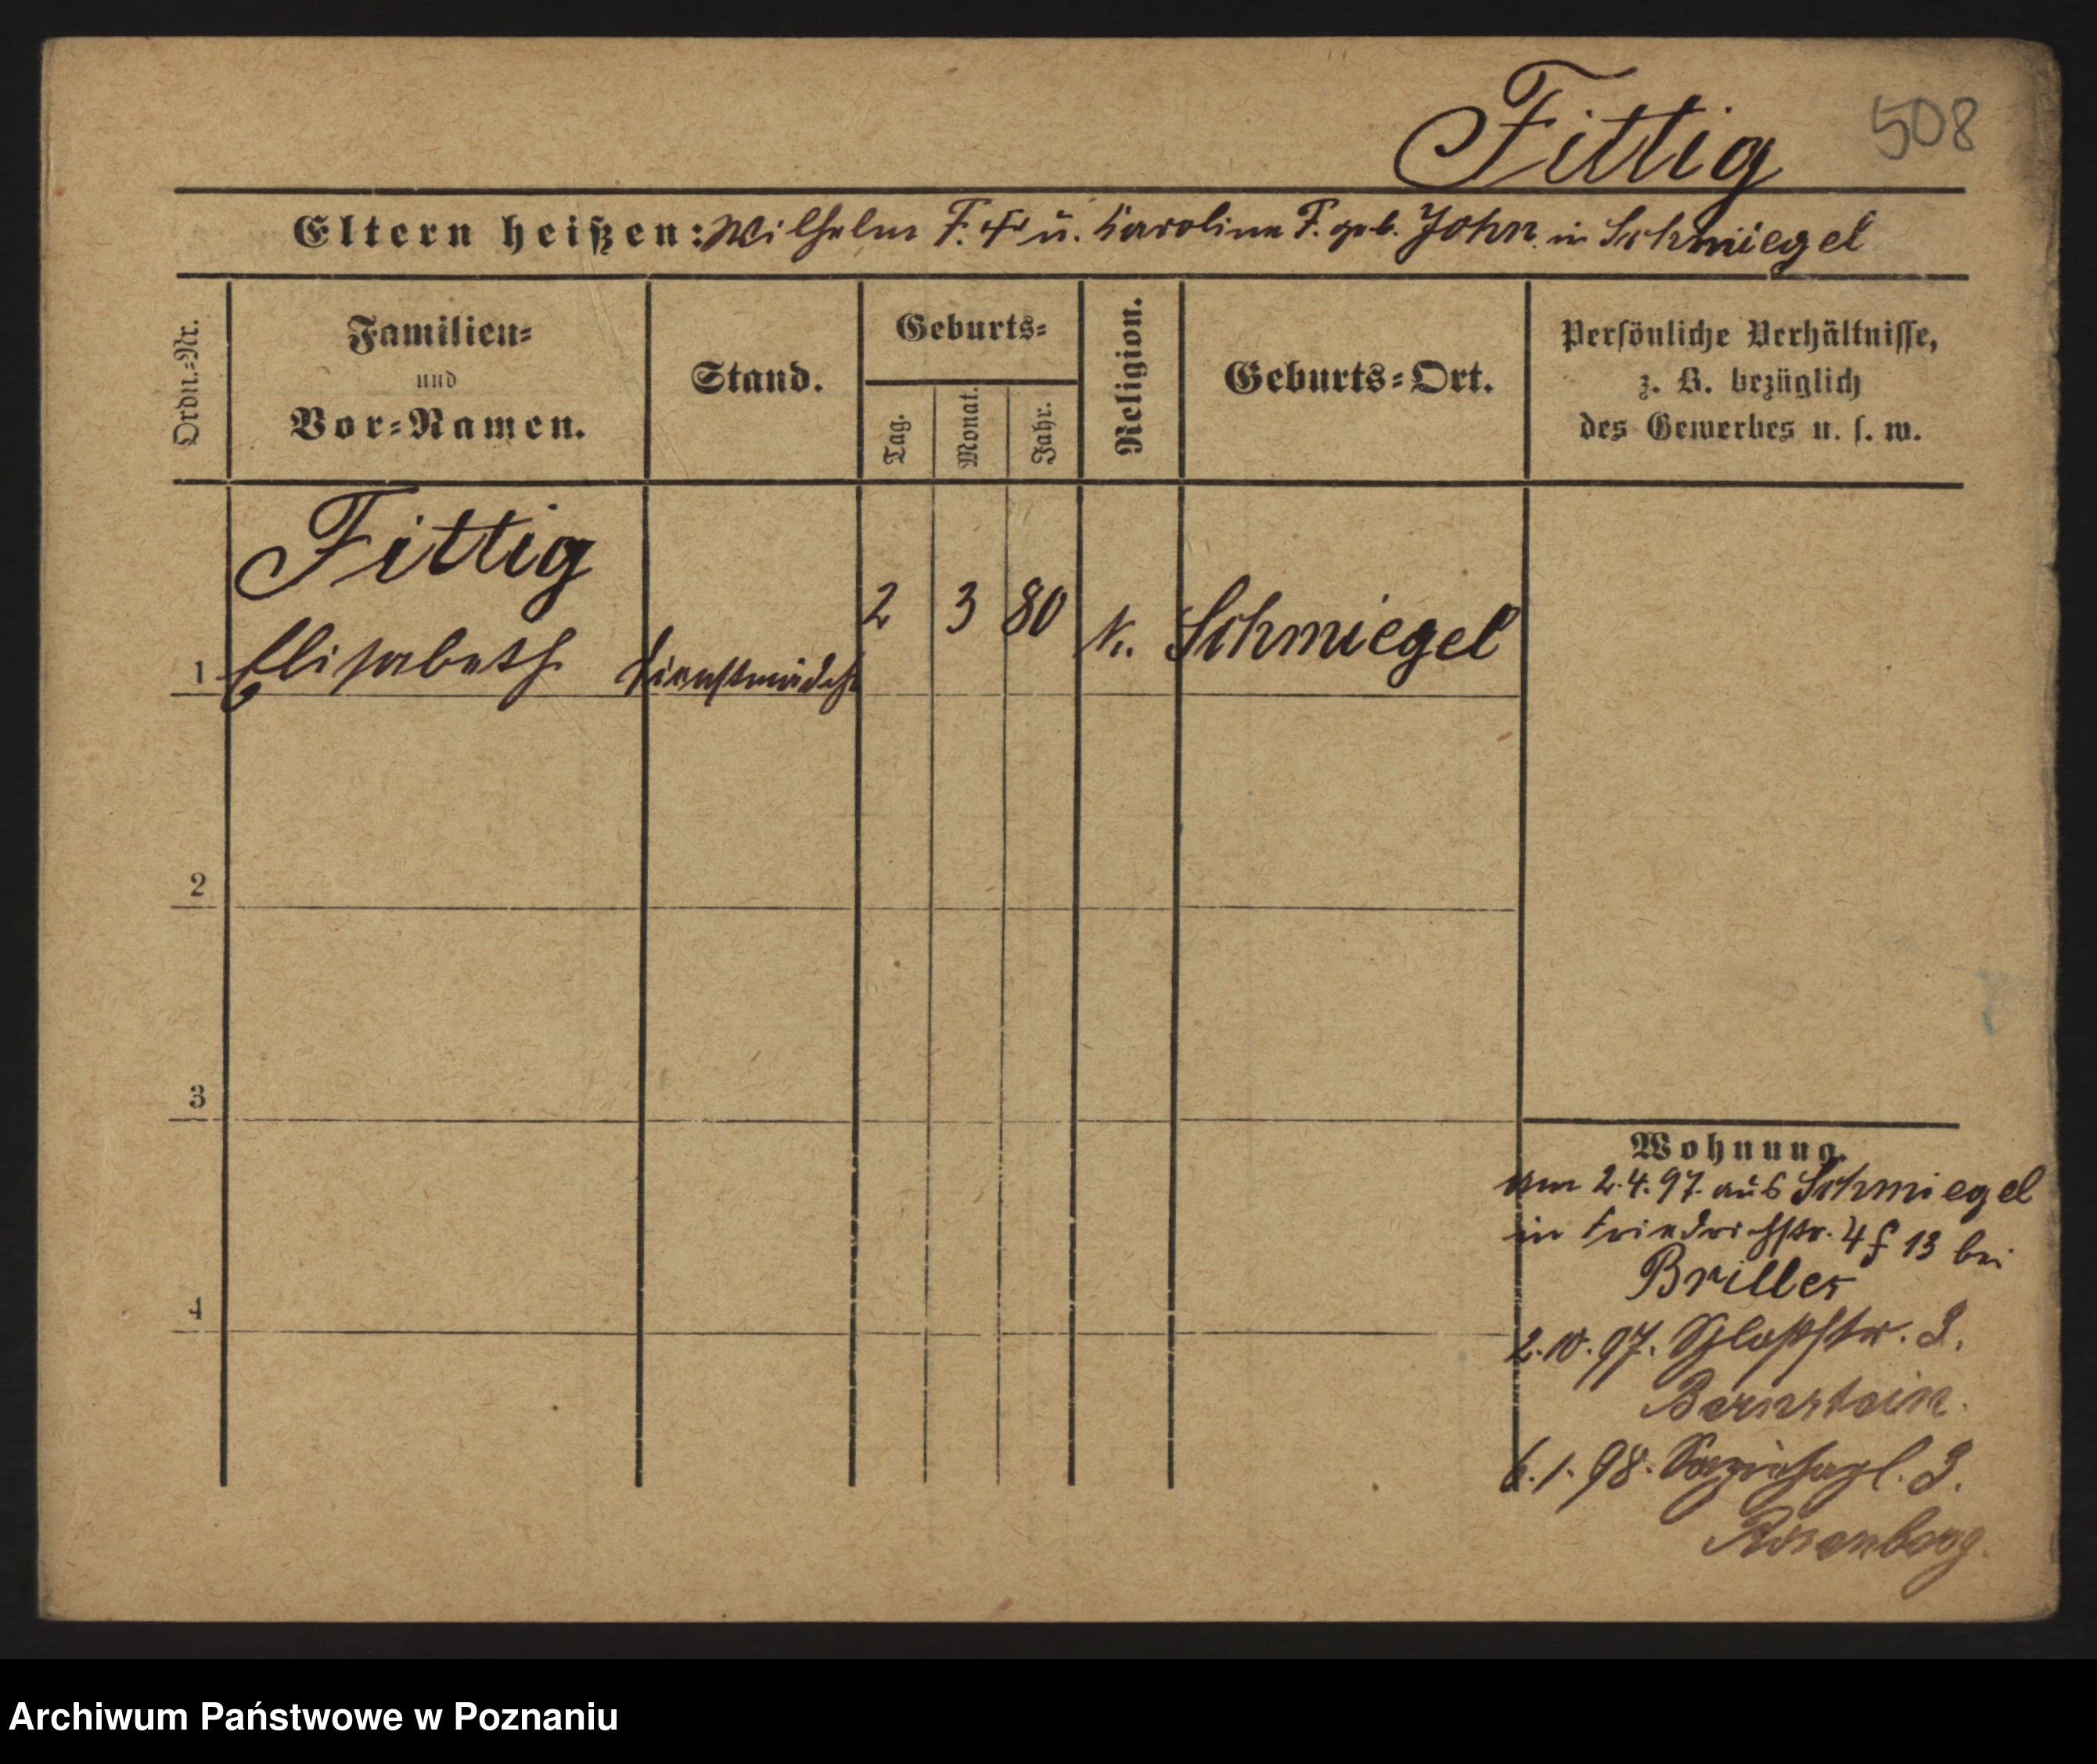 Fittig 508
Eltern heißen: Wilhelm F. u. Karoline F. geb. John in Schmiegel
Ordn.-Nr.
Familien-
und
Vor-Namen.
Stand.
Geburts-
Tag.
Monat.
Jahr.
Religion.
Geburts-Ort.
Persönliche Verhältnisse,
z. B. bezüglich
des Gewerbes u. s. w.
Fittig
1 Elisabeth Dienstmädch 2 3 80 k. Schmiegel
2
3
4
Wohnung.
am 2.4.97. aus Schmiegel
in Friedrichstr. 13 bei
Briller
2.10.97. Schloßstr. 3.
Bernstein.
6.1.98. Sapiehapl. 3.
Rosenberg.
Archiwum Państwowe w Poznaniu